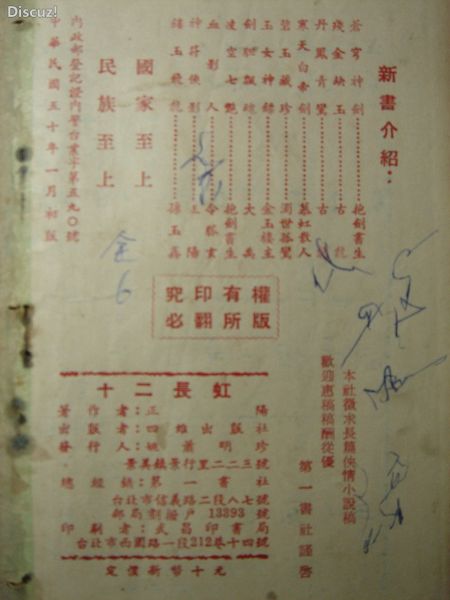 Discuz!
新書介紹：
蒼穹神劍…………抱劍書生
殘金缺玉…………古龍
丹鳳青鸞…………古
寒天白帝劍…………慕虹散人
碧玉藏珍…………濁世孤鸞
玉女神…………金玉樓主
劍…………大禹
凌空七艷…………抱劍書生
血影人…………令狐玄
神俠影…………正陽
玉飛龍…………孫玉鑫
國家至上
民族至上
內政部登記證內警台業字第五九〇號
中華民國五十年一月初版
全
6
權有印究
版所翻必
本社徵求長篇俠情小說稿
歡迎惠稿稿酬從優
第一書社謹啓
十二長虹
著作者：正陽
出版者：四維出版社
發行人：姚蕭明珍
景美鎮景行里二二三號
總經銷：第一書社
台北市信義路二段八七號
郵局劃撥戶 13393 號
印刷者：武昌印書局
台北市西園路一段212巷十四號
定價新幣十元